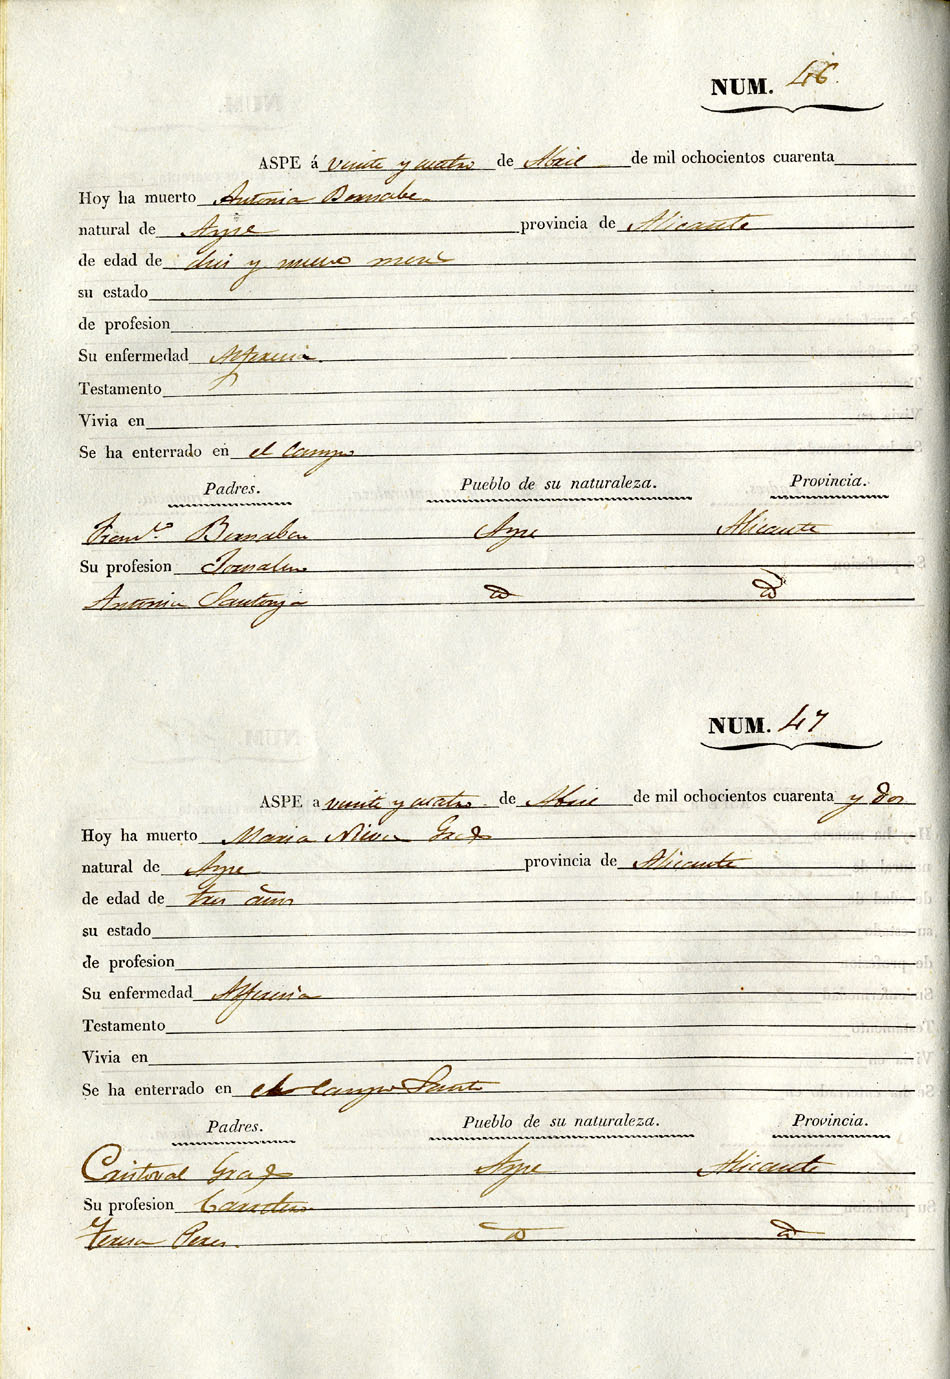 NUM. 46
ASPE á veinte y cuatro de Abril de mil ochocientos cuarenta
Hoy ha muerto Antonia Bernabe
natural de Aspe provincia de Alicante
de edad de diez y nueve meses
su estado
de profesion
Su enfermedad Alferecia
Testamento
Vivia en
Se ha enterrado en el Campo
Padres. Pueblo de su naturaleza. Provincia.
Franco. Bernabeu Aspe Alicante
Su profesion Jornalero
Antonia Santonja id id
NUM. 47
ASPE a veinte y cuatro de Abril de mil ochocientos cuarenta y dos
Hoy ha muerto Maria
natural de Aspe provincia de Alicante
de edad de tres años
su estado
de profesion
Su enfermedad Alferecia
Testamento
Vivia en
Se ha enterrado en el Campo Santo
Padres. Pueblo de su naturaleza. Provincia.
Cristoval Aspe Alicante
Su profesion
Teresa Perez id id